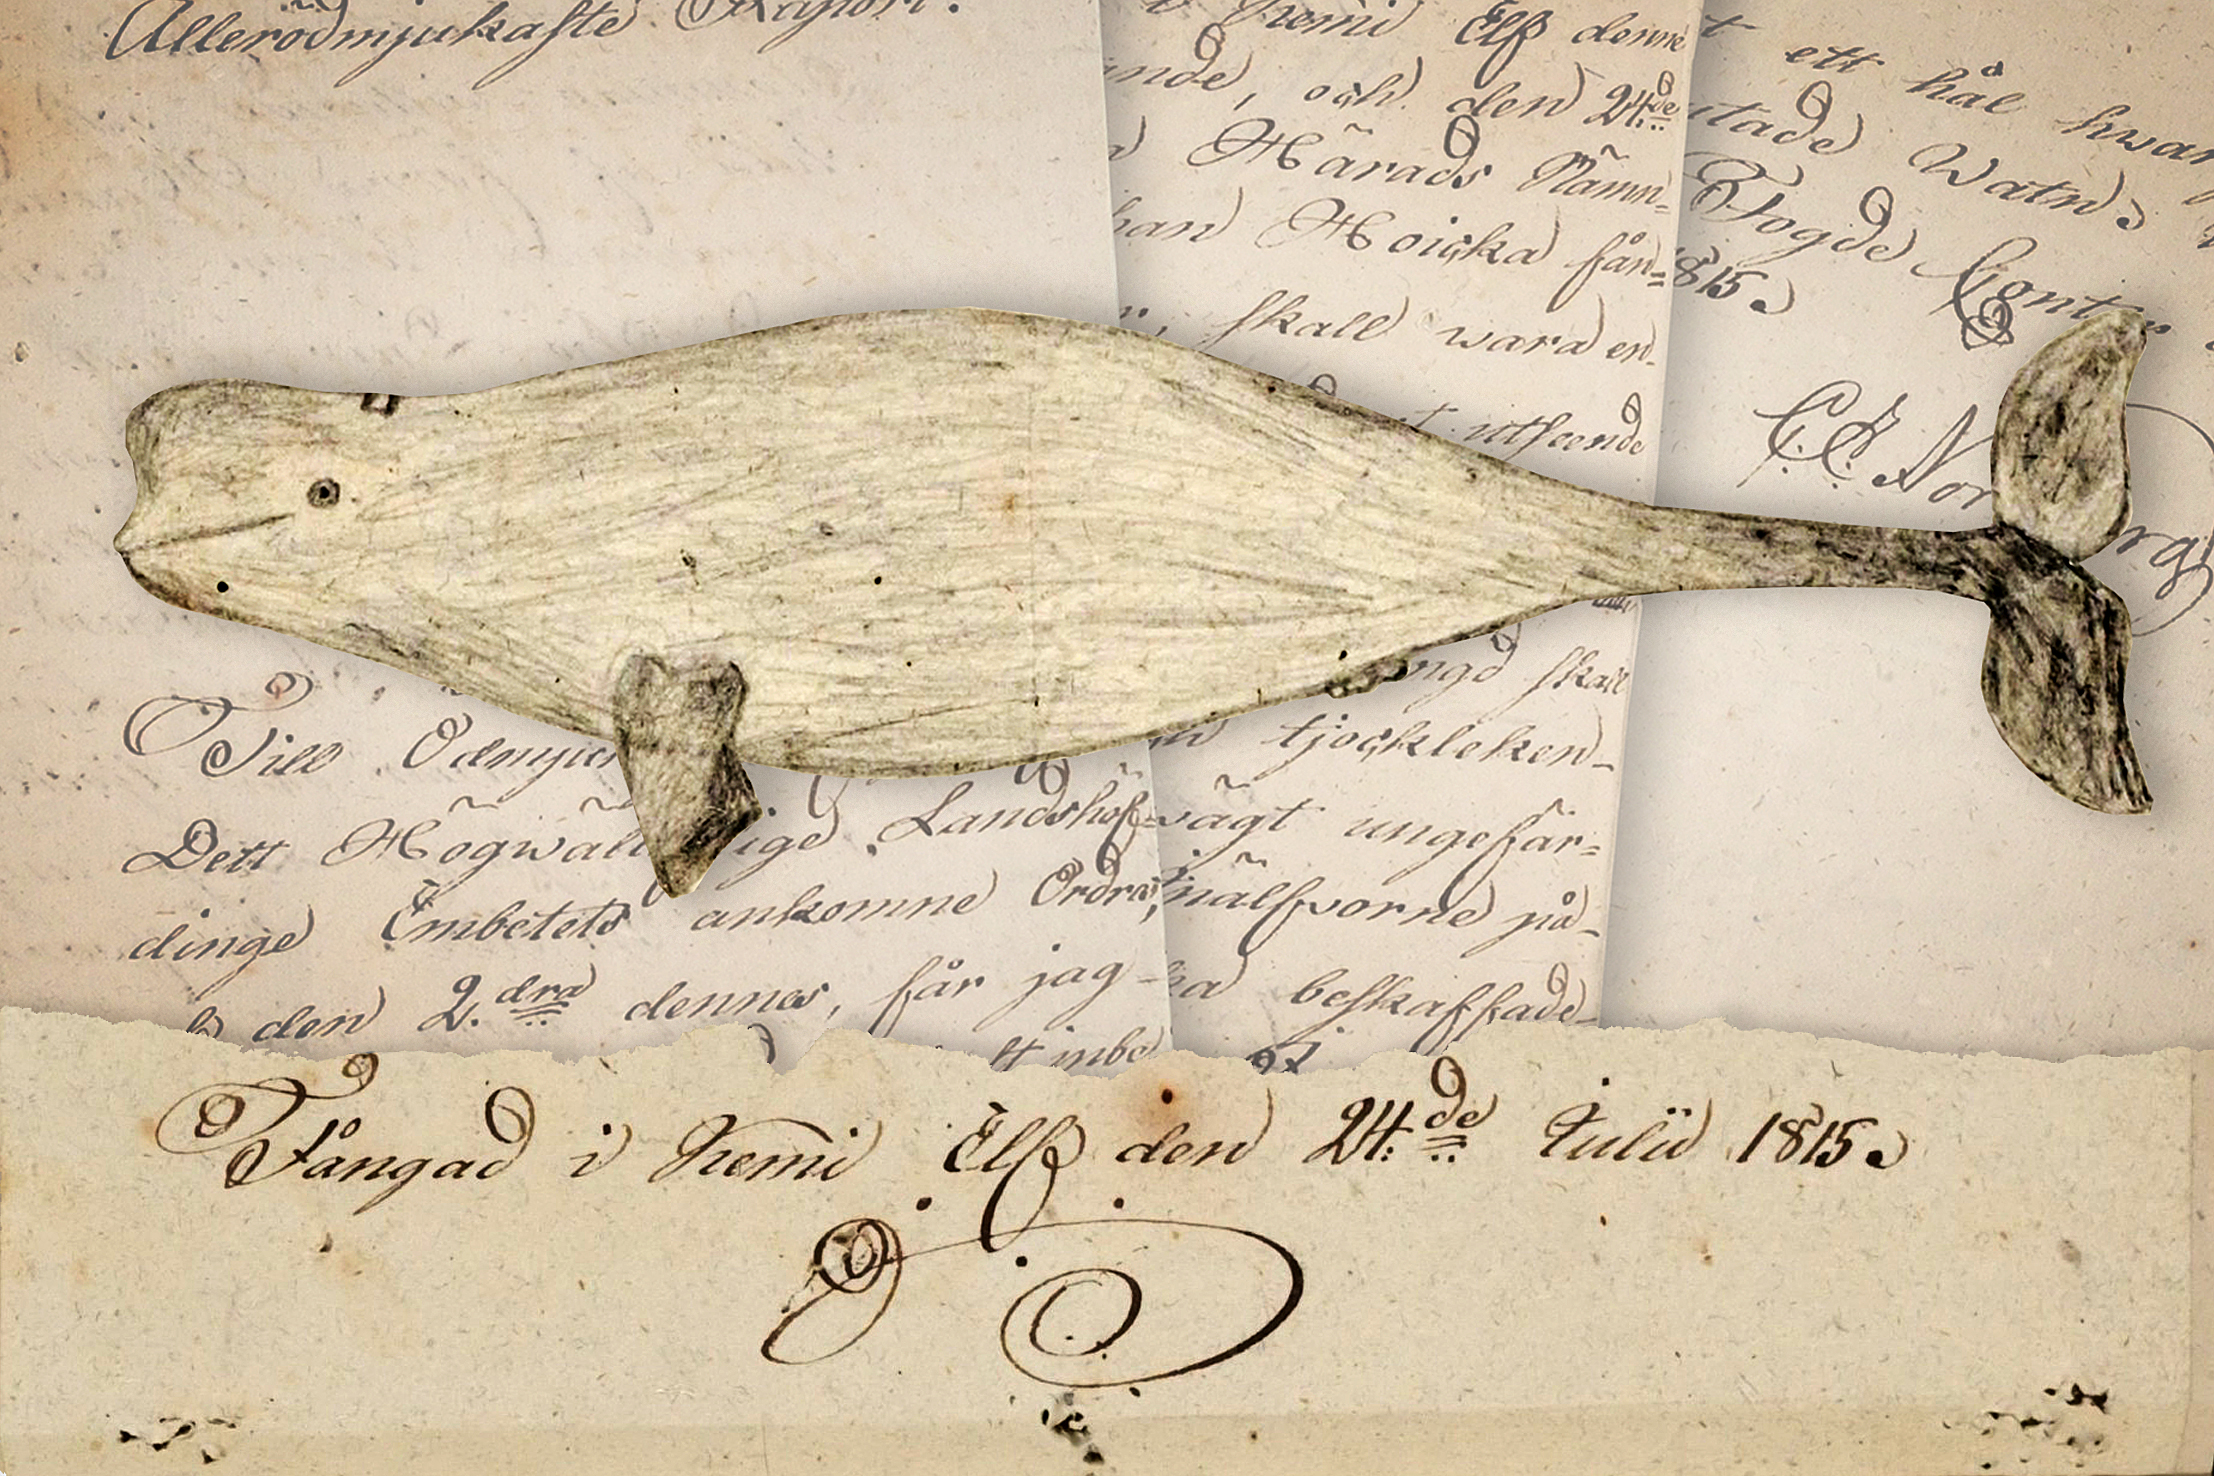 Allerödmjukaste Raport.
Till Ödmjuk
Dett Högwäl ige Landshöf=
dinge Embetets ankomne Ordre,
den 2.dra dennes, får jag
t inbe
i Kemi Elf denne
ände, och den 24:de
Härads Nämn=
han Hoicka fån=
skall wara en-
t utseende
ängd skall
tjockleken-
wägt ungefär=
på-
beskaffade-
t ett hål hwar
utade Watn.
Fogde Cont
1815.
C: E: Nor rg
Fångad i Kemi Elf den 24:de Julii 1815.